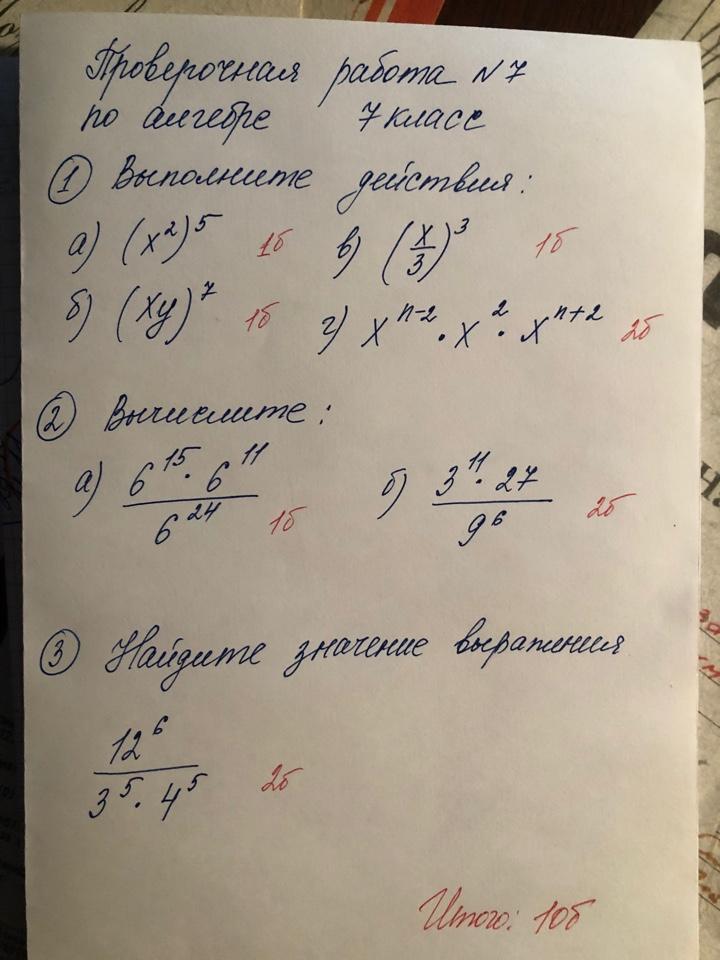 Проверочная работа №7
по алгебре 7 класс
① Выполните действия:
а) (x²)⁵ 1б в) (x/3)³ 1б
б) (xy)⁷ 1б г) xⁿ⁻² · x² · xⁿ⁺² 2б
② Вычислите:
а) 6¹⁵ · 6¹¹ / 6²⁴ 1б б) 3¹¹ · 27 / 9⁶ 2б
③ Найдите значение выражения
12⁶ / 3⁵ · 4⁵ 2б
Итого: 10б